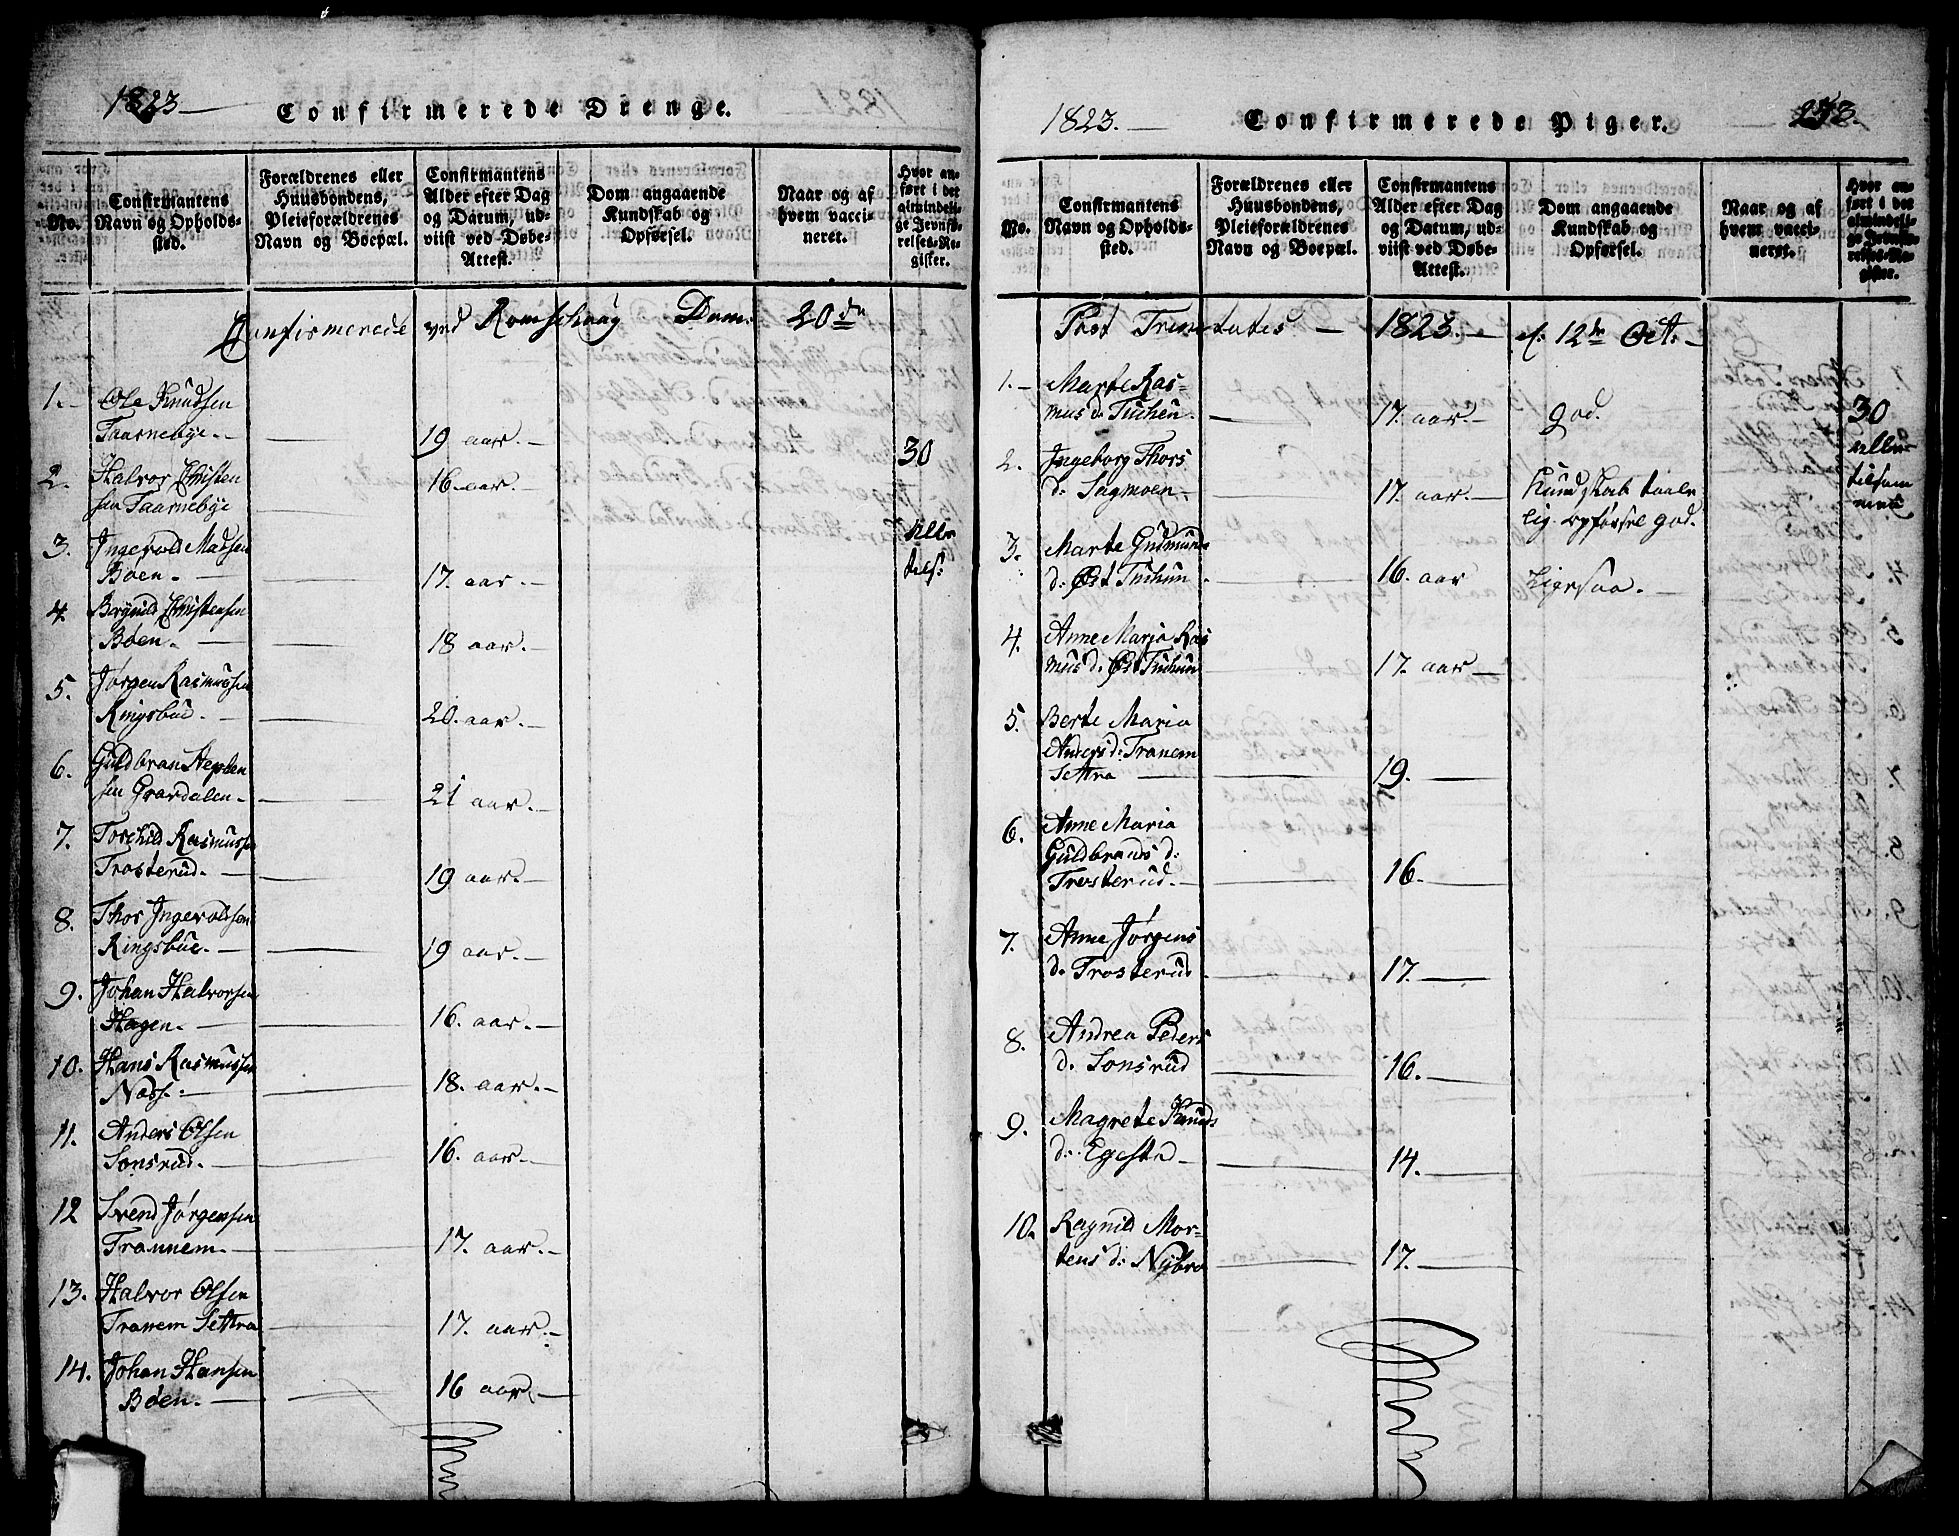 1823
Confirmerede Drenge.
No.
Confirmantens
Navn og Opholds-
sted.
Forældrenes eller
Huusbondens,
Pleieforældrenes
Navn og Boepæl.
Confirmantens
Alder efter Dag
og Datum, ud-
viist ved Døbe-
Attest.
Dom angaaende
Kundskab og
Opførsel.
Naar og af
hvem vacci-
neret.
Hvor an-
ført i det
almindeli-
ge Jevnfø-
relses-Re-
gister.
Confirmerede ved Romschoug Dom. 20de
1. Ole Knudsen
Taarnebye. 19 aar.
30
2. Halvor Christen
sen Taarnebye 16 aar.
alle
tils:
3. Ingevold Madsen
Boen. 17. aar.
4. Christensen
Böen. 18 aar.
5. Jørgen Rasmussen
Ringsbue. 20. aar.
6. Guldbran
sen Grasdalen. 21 aar.
7. Torchild Rasmussen
Trosterud. 19 aar.
8. Thor Ingevoldsen
Ringsbue. 19 aar.
9. Johan Halvorsen
Hagen. 16. aar.
10. Hans Rasmussen
Næss: 18. aar.
11. Anders Olsen
Sonsrud. 16. aar.
12 Svend Jørgensen
Trannem. 17. aar.
13. Halvor Olsen
Tranem Settra 17. aar.
14. Johan Hansen
Böen. 16 aar
1823.
Confirmerede Piger.
273.
No.
Confirmantens
Navn og Opholds-
sted.
Forældrenes eller
Huusbondens,
Pleieforældrenes
Navn og Boepæl.
Confirmantens
Alder efter Dag
og Datum, ud-
viist ved Døbe-
Attest.
Dom angaaende
Kundskab og
Opførsel.
Naar og af
hvem vacci-
neret.
Hvor an-
ført i det
almindeli-
ge Jevnfø-
relses-Re-
gister.
Post Trinitates 1823. d. 12de Oct.
1. Marte Ras-
mus d. Tuchen. 17. aar god.
30
alle
tilsam
men
2. Ingeborg Thors
d: Sagmoen. 17. aar. Kundskab taale
lig. opførsel god.
3. Marte Gudmunds
d: Øst Tuchun 16. aar Ligesaa.
4. Anne Maria Ras
mus d. Øst Tuchun 17. aar
5. Berte Maria
Anders d: Tranem
Settra 19.
6. Anne Maria
Guldbrands d:
Trosterud. 16.
7. Anne Jørgens
d. Trosterud 17.
8. Andrea Peders
d. Sonsrud 16.
9. Magrete Knuds
d: Egesta 14.
10. Ragnild Mor-
tens d: Nybro 17.